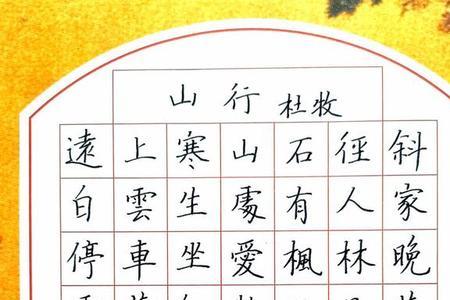 山行 杜牧
遠上寒山石徑斜
白雲生處有人家
停車坐愛楓林晚